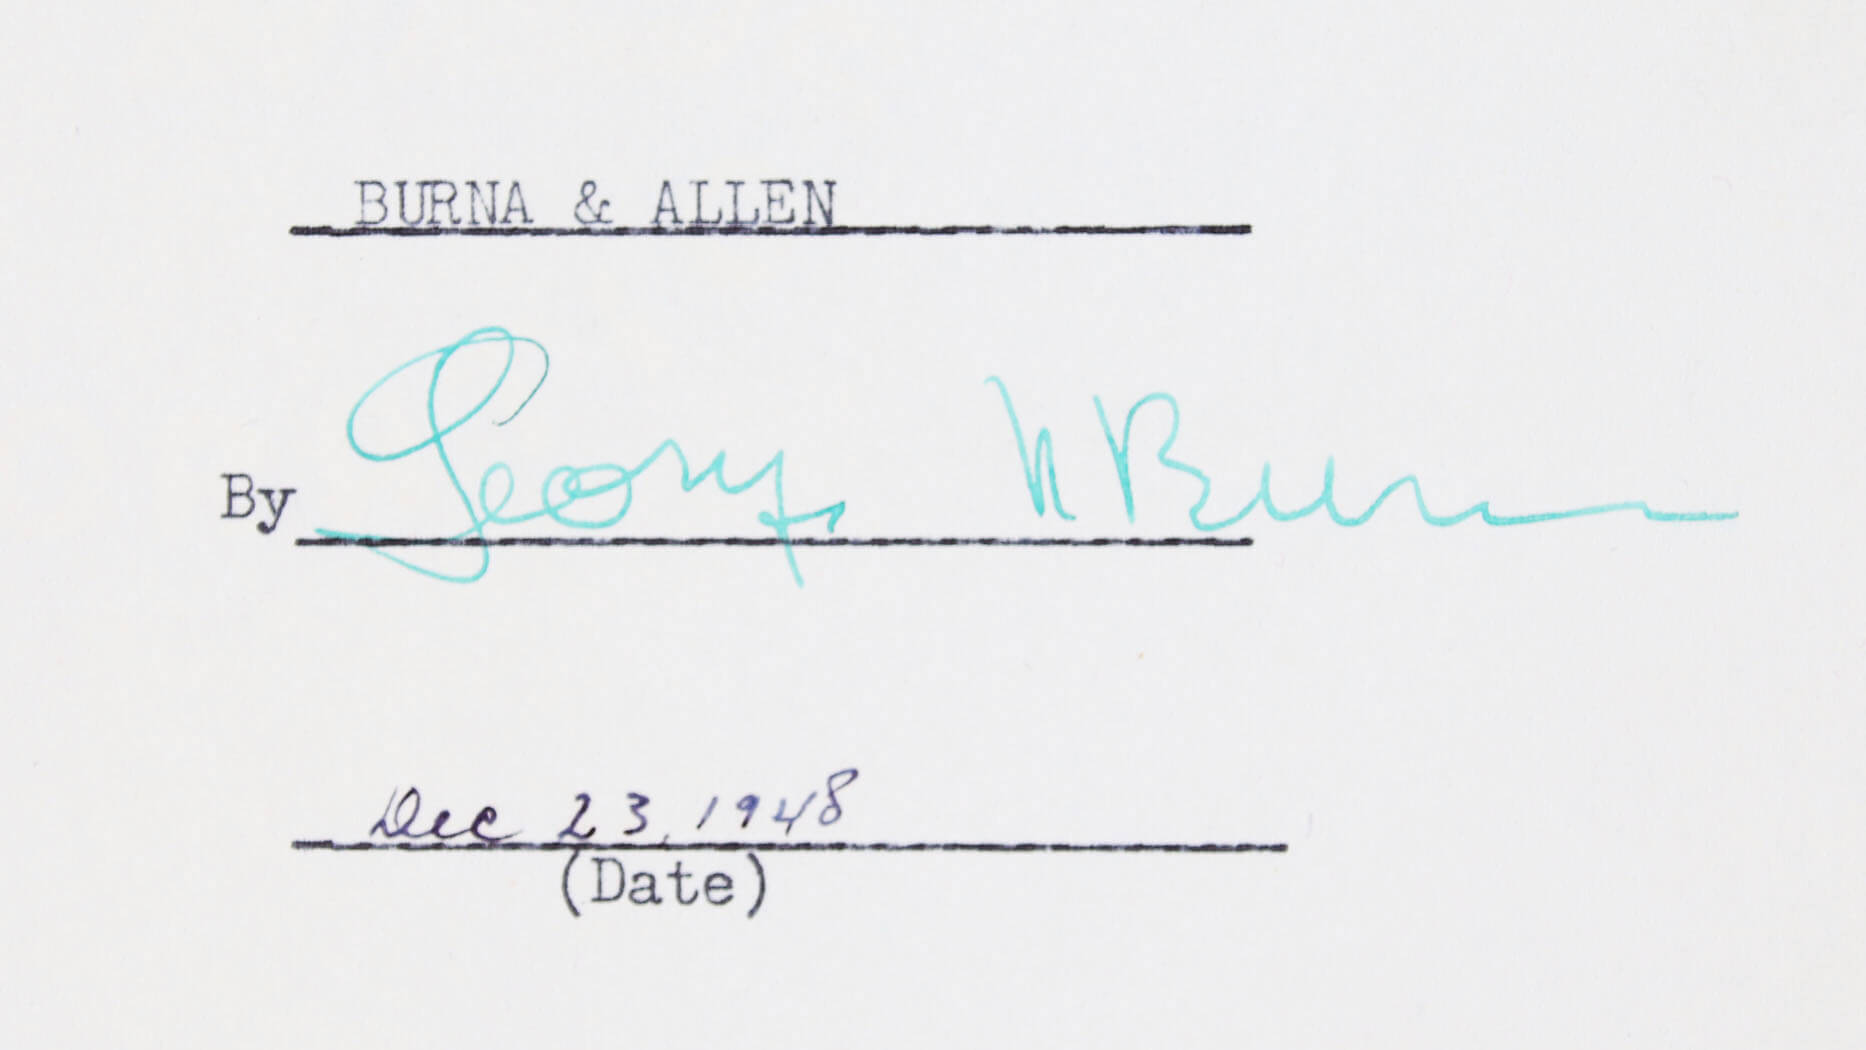 BURNA & ALLEN
By George N Burns
Dec 23, 1948
(Date)